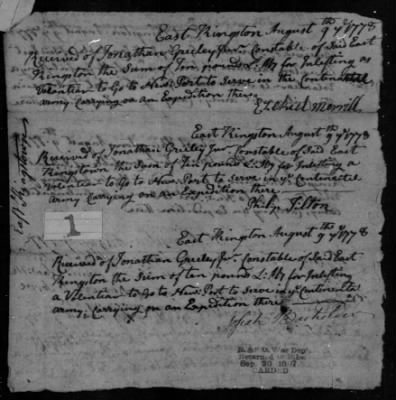 East Kingston August 9th 1778
Received of Jonathan Greeley Junr. Constable of Said East
Kingston the Sum of Ten pounds L: My for Inlisting as
Volentier to Go to New Port to Serve in the Continental
army Carrying on an Expedition there
Ezekiel Morrill
East Kingston August 9th 1778
Received of Jonathan Greeley Junr Constable of Said East
Kingstown the Sum of Ten pound L: My for Inlisting a
Volentier to Go to New Port to serve in ye Continental
Army Carrying on an Expedition there
Philip Tilton
1
East Kingston August 9th 1778
Received of Jonathan Greeley Jur. Constable of Said East
Kingston the Sum of ten pound L: My for Inlisting
a Volentier to Go to New Port to Serve in ye Continental
army: Carrying on an Expedition there
R. & P. War Dep.
Returned to
Sep. 20 1897
CARDED